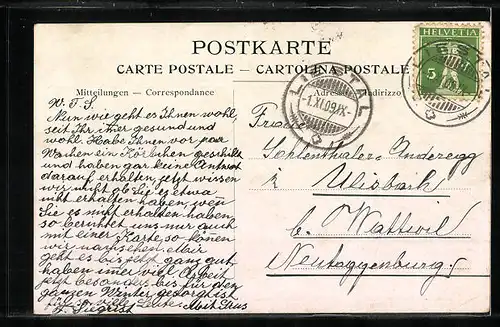 POSTKARTE
CARTE POSTALE - CARTOLINA POSTALE
Mitteilungen - Correspondance
Adresse Indirizzo
HELVETIA
5
LIESTAL
-1.XI.09.IX-
LIESTAL
W. F. S.
Nun wie geht es Ihnen wohl,
seit Ihr hier gesund und
wohl. Habe Ihnen vor paar
Wochen ein Körbchen geschikt
und haben gar keine Antwort
darauf erhalten, jetzt wissen
wir nicht ob Sie es etwa
nicht erhalten haben, wen
Sie es nicht erhalten haben
so berichtet uns nur auch
mit einer Karte so können
wir nachsehen. Mir
geht es bis jetzt ganz gut
haben imer viel Arbeit
jetzt besonders bis für den
ganzen Winter gesorgt ist
Mit Grus
F. Siegrist
Frau
Anderegg
z. Ulisbach
b. Wattwil
Neutoggenburg